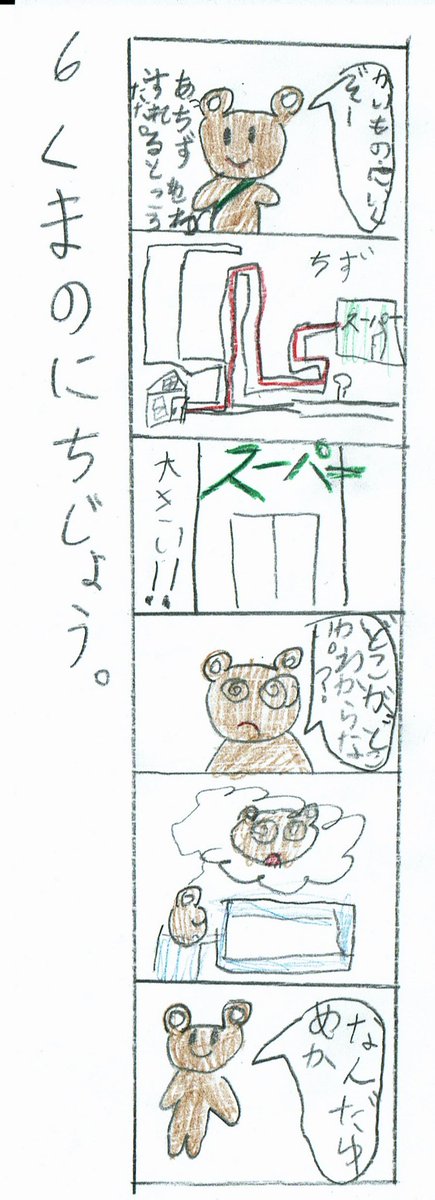 6 くまのにちじょう。
かいものにいく
ぞー
あちずをわ
すれるところ
だた。
ちず
スーパー
スーパー
大きい!!
どこがどこ
かわからな
い。?
なんだゆ
めか